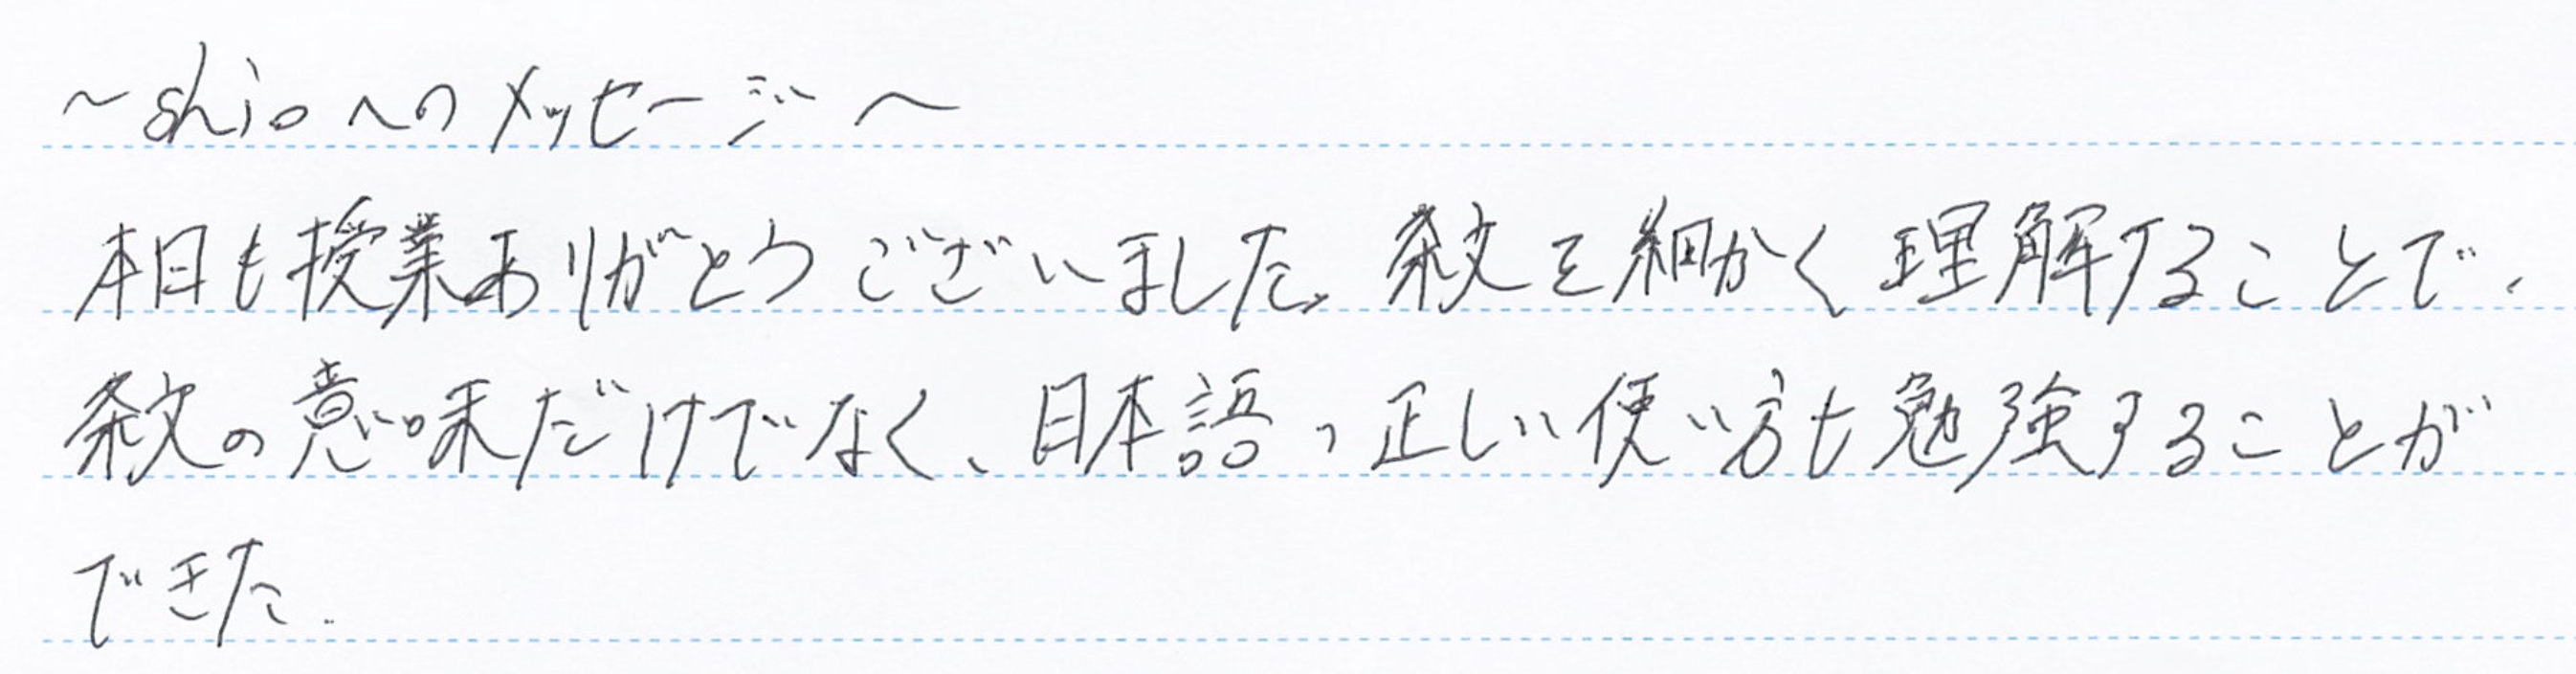 ～shioへのメッセージ～
本日も授業ありがとうございました。条文を細かく理解することで、
条文の意味だけでなく、日本語の正しい使い方も勉強することが
できた.